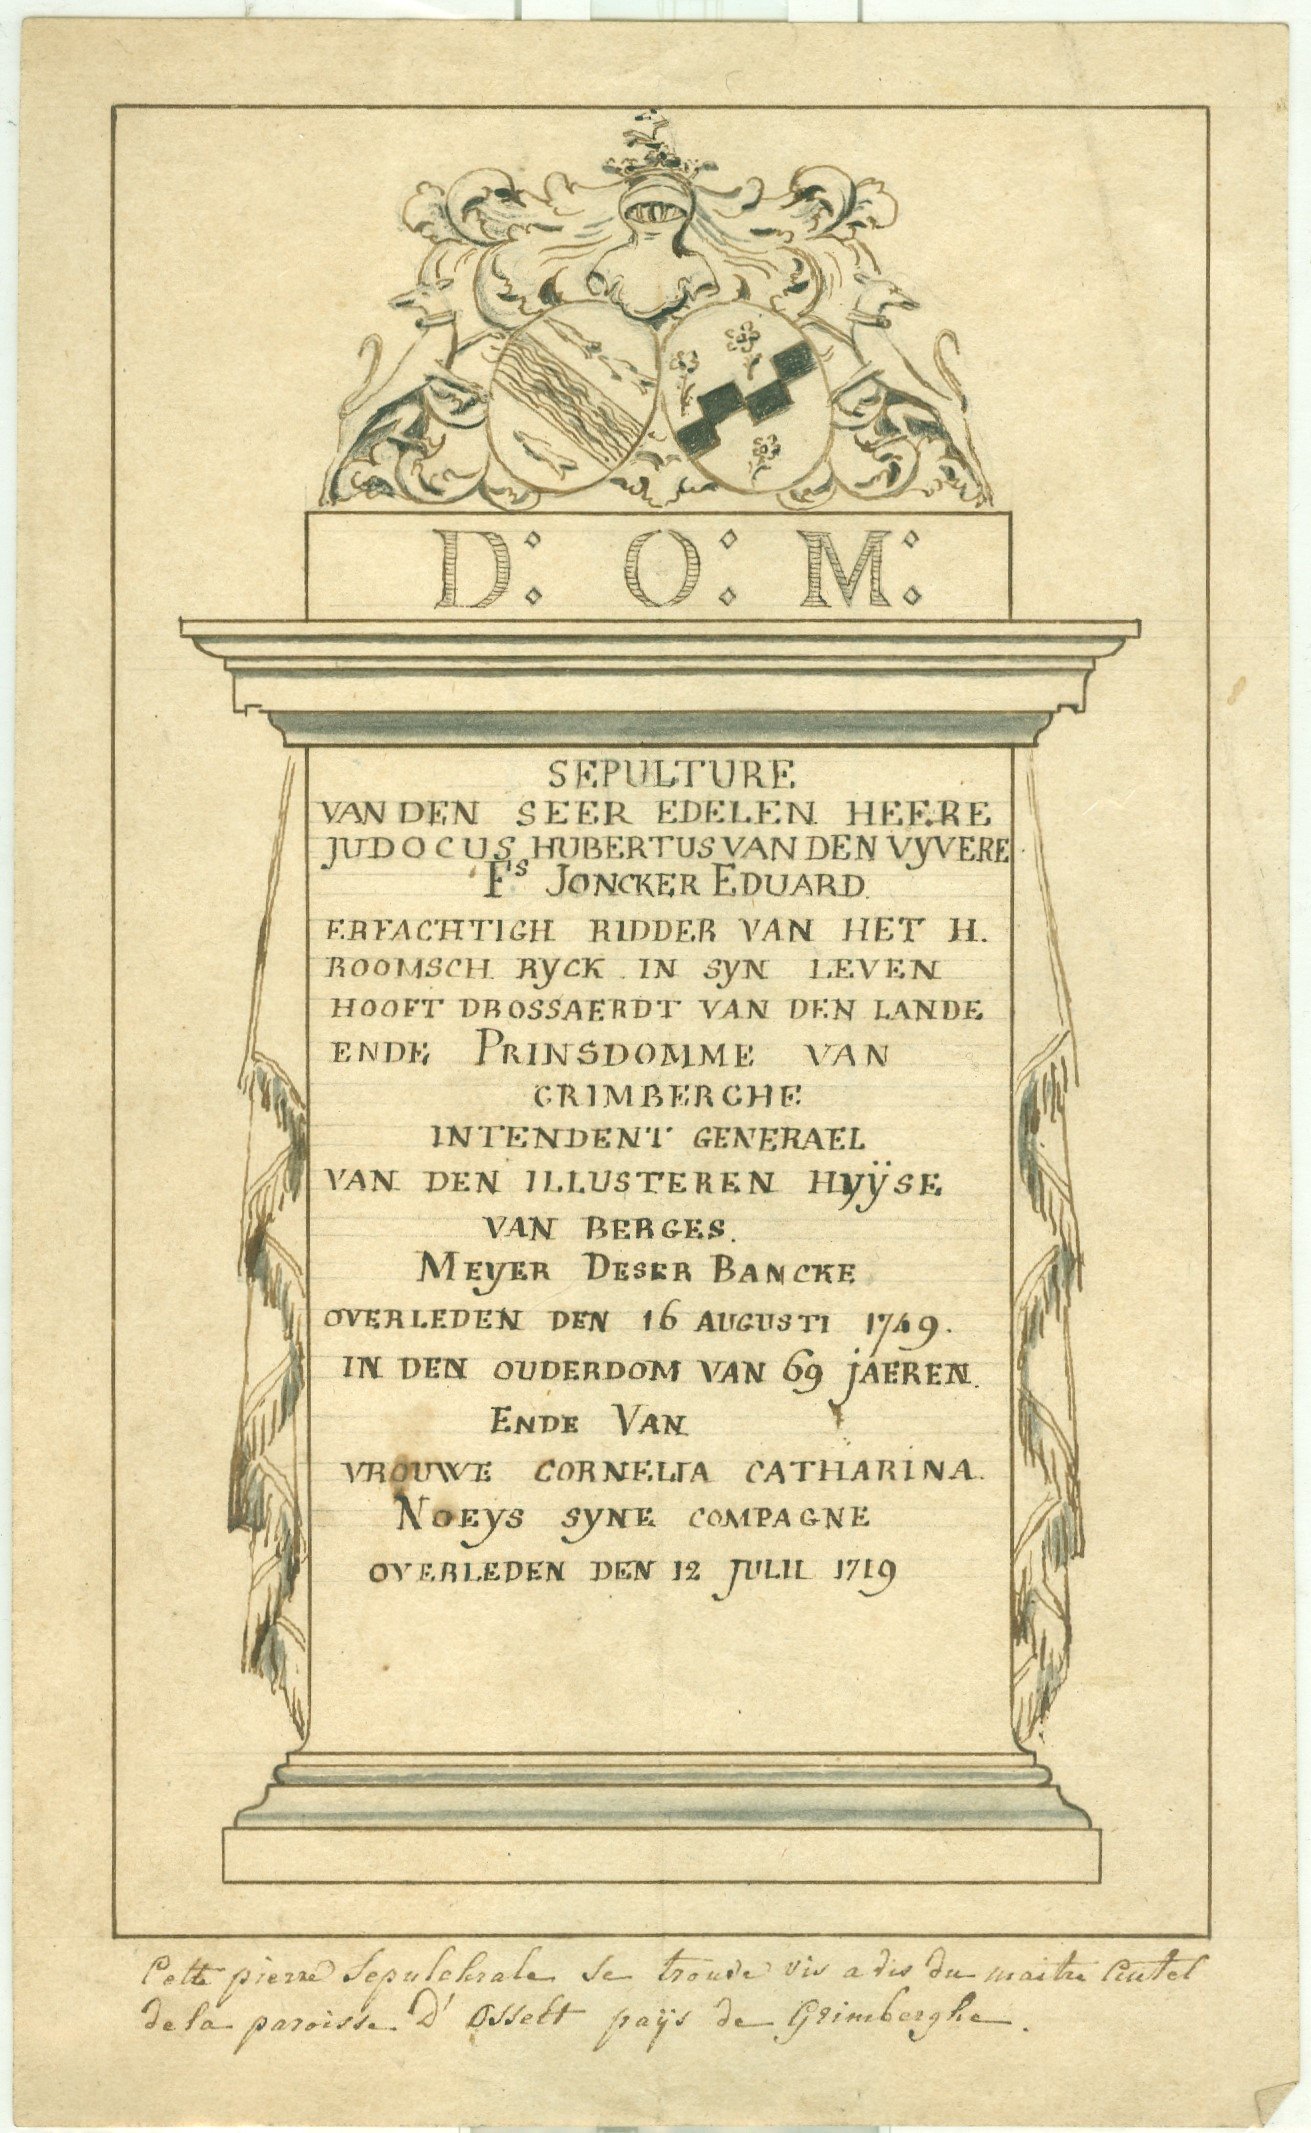 D: O: M:
SEPULTURE
VAN DEN SEER EDELEN HEERE
JUDOCUS HUBERTUS VAN DEN VYVERE
Fs JONCKER EDUARD.
ERFACHTIGH RIDDER VAN HET H.
ROOMSCH RYCK IN SYN LEVEN
HOOFT DROSSAERDT VAN DEN LANDE
ENDE PRINSDOMME VAN
GRIMBERGHE
INTENDENT GENERAEL
VAN DEN ILLUSTEREN HYŸSE
VAN BERGES.
MEYER DESER BANCKE
OVERLEDEN DEN 16 AUGUSTI 1749.
IN DEN OUDERDOM VAN 69 JAEREN.
ENDE VAN
VROUWE CORNELIA CATHARINA
NOEYS SYNE COMPAGNE
OVERLEDEN DEN 12 JULII 1719
Cette pierre Sepulchrale se trouve vis a vis du maitre Autel
de la paroisse D'Osselt paÿs de Grimberghe.